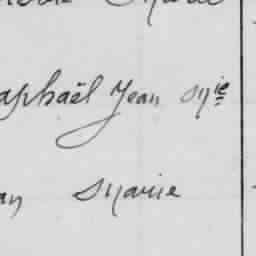 Marie
aphaël Jean Mie
an Marie